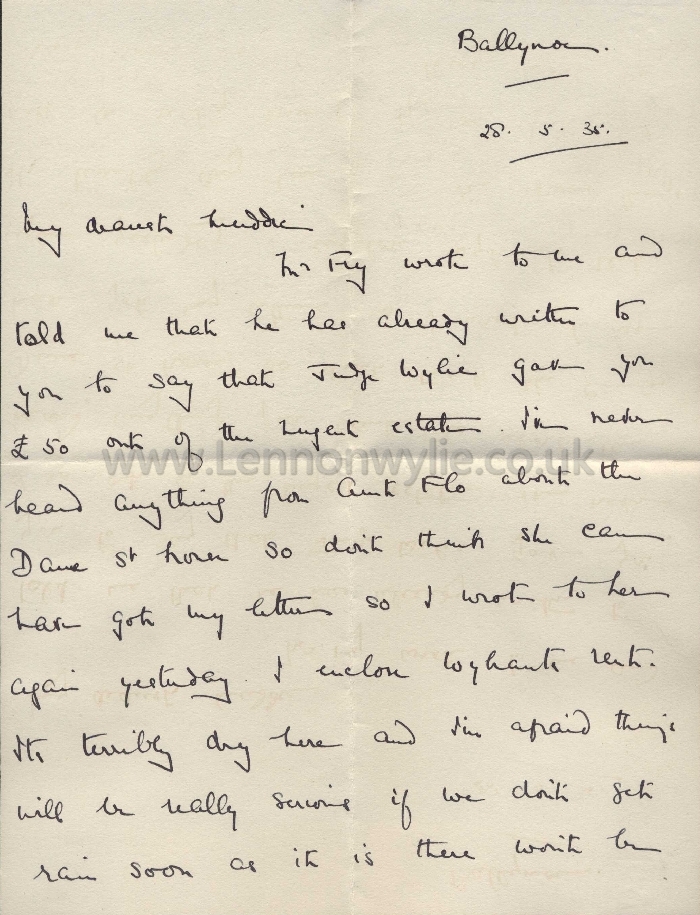 Ballynoe.
28. 5. 35.
My dearest Muddie
Mr Fry wrote to me and
told me that he has already written to
you to say that Judge Wylie gave you
£50 out of the Nugent estate. I've never
www.Lennonwylie.co.uk
heard anything from Aunt Flo about the
Dame St house so don't think she can
have got my letter so I wrote to her
again yesterday. I enclose rent.
It's terribly dry here and I'm afraid things
will be really serious if we don't get
rain soon as it is there won't be